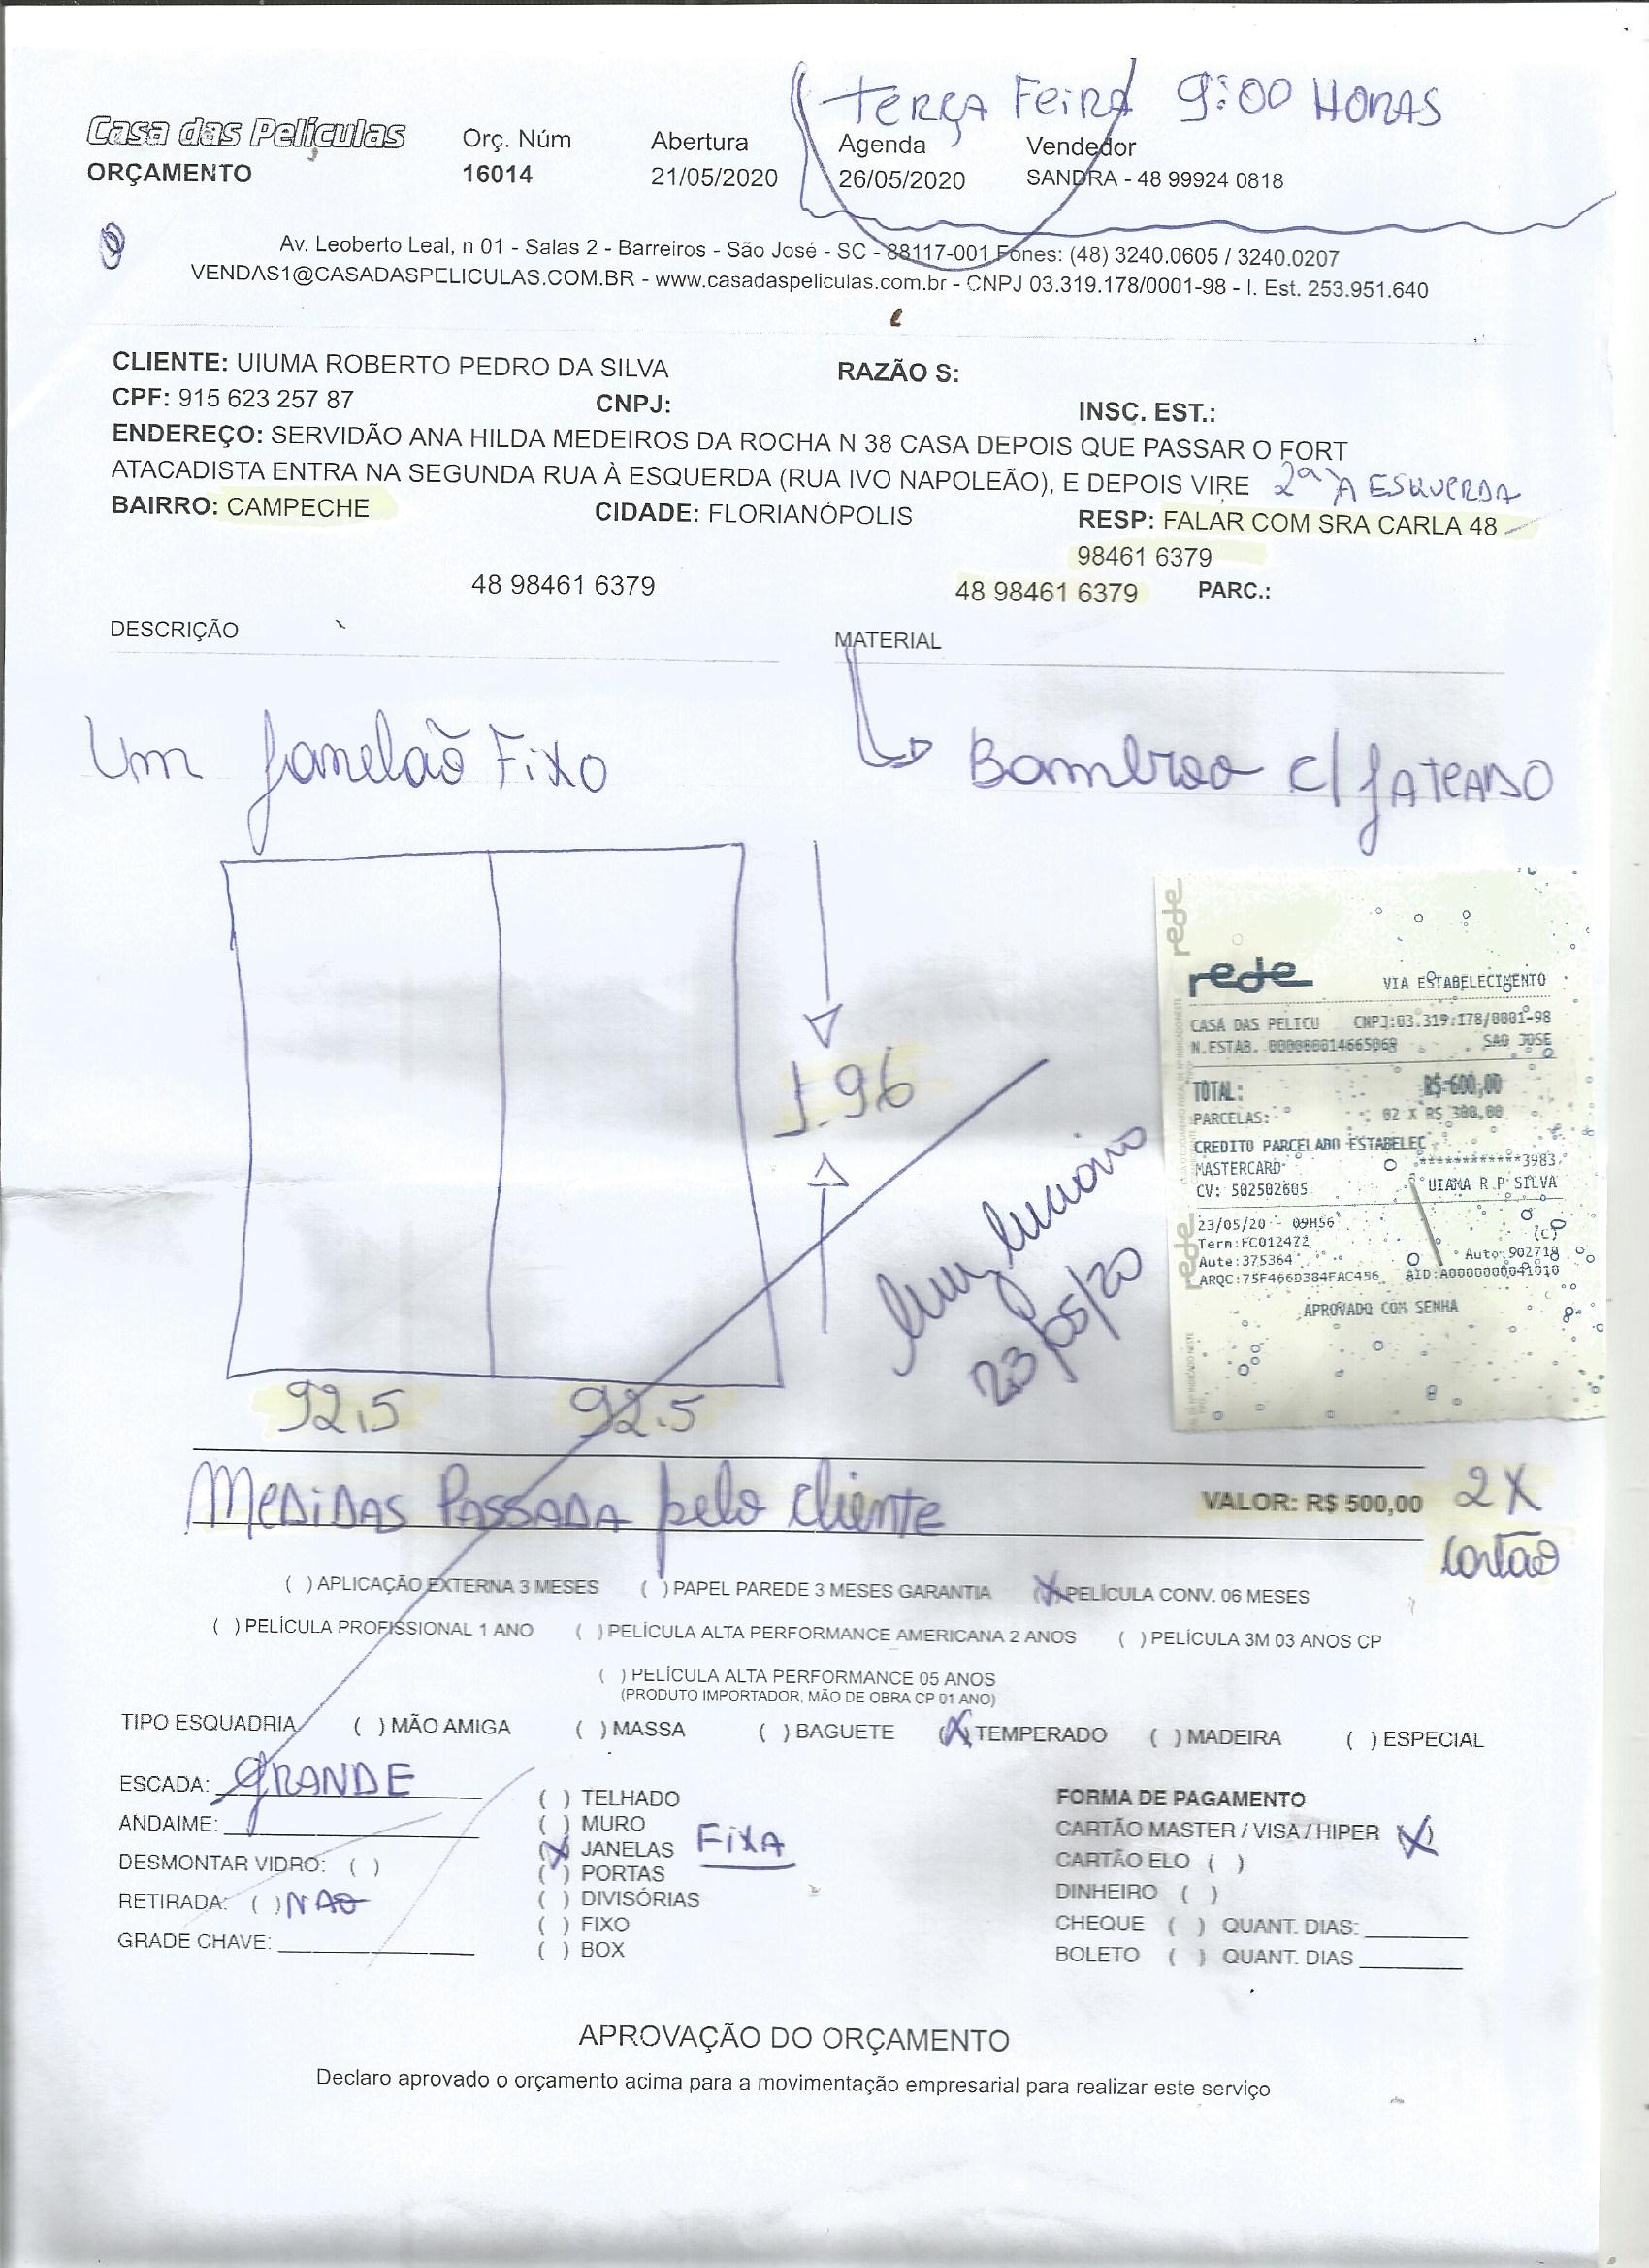 TERÇA FEIRA 9:00 HORAS
Casa das Películas Orç. Núm Abertura Agenda Vendedor
ORÇAMENTO 16014 21/05/2020 26/05/2020 SANDRA - 48 99924 0818
Av. Leoberto Leal, n 01 - Salas 2 - Barreiros - São José - SC - 88117-001 Fones: (48) 3240.0605 / 3240.0207
VENDAS1@CASADASPELICULAS.COM.BR - www.casadaspeliculas.com.br - CNPJ 03.319.178/0001-98 - I. Est. 253.951.640
CLIENTE: UIUMA ROBERTO PEDRO DA SILVA RAZÃO S:
CPF: 915 623 257 87 CNPJ: INSC. EST.:
ENDEREÇO: SERVIDÃO ANA HILDA MEDEIROS DA ROCHA N 38 CASA DEPOIS QUE PASSAR O FORT
ATACADISTA ENTRA NA SEGUNDA RUA À ESQUERDA (RUA IVO NAPOLEÃO), E DEPOIS VIRE 2ª À ESQUERDA
BAIRRO: CAMPECHE CIDADE: FLORIANÓPOLIS RESP: FALAR COM SRA CARLA 48
98461 6379
48 98461 6379 48 98461 6379 PARC.:
DESCRIÇÃO MATERIAL
Um janelaõ Fixo Bambroo c/ JATEADO
rede
rede VIA ESTABELECIMENTO
CASA DAS PELICU CNPJ:03.319.178/0001-98
N.ESTAB. 000000014665069 SAO JOSE
TOTAL: R$ 600,00
PARCELAS: 02 X R$ 300,00
CREDITO PARCELADO ESTABELEC
MASTERCARD ************3983
CV: 502502605 UIAMA R P SILVA
23/05/20 - 09H56 (C)
Term:FC012472
Aute:375364 Auto:902718
ARQC:75F466D384FAC456 AID:A0000000041010
APROVADO COM SENHA
rede
1.96
23/05/20
92,5 92.5
MEDIDAS PASSADA pelo cliente VALOR: R$ 500,00 2X
cartão
( ) APLICAÇÃO EXTERNA 3 MESES ( ) PAPEL PAREDE 3 MESES GARANTIA (X) PELÍCULA CONV. 06 MESES
( ) PELÍCULA PROFISSIONAL 1 ANO ( ) PELÍCULA ALTA PERFORMANCE AMERICANA 2 ANOS ( ) PELÍCULA 3M 03 ANOS CP
( ) PELÍCULA ALTA PERFORMANCE 05 ANOS
(PRODUTO IMPORTADOR, MÃO DE OBRA CP 01 ANO)
TIPO ESQUADRIA ( ) MÃO AMIGA ( ) MASSA ( ) BAGUETE (X) TEMPERADO ( ) MADEIRA ( ) ESPECIAL
ESCADA: GRANDE
ANDAIME:
DESMONTAR VIDRO: ( )
RETIRADA: ( ) NAO
GRADE CHAVE:
( ) TELHADO
( ) MURO
(X) JANELAS FIXA
( ) PORTAS
( ) DIVISÓRIAS
( ) FIXO
( ) BOX
FORMA DE PAGAMENTO
CARTÃO MASTER / VISA / HIPER (X)
CARTÃO ELO ( )
DINHEIRO ( )
CHEQUE ( ) QUANT. DIAS:
BOLETO ( ) QUANT. DIAS
APROVAÇÃO DO ORÇAMENTO
Declaro aprovado o orçamento acima para a movimentação empresarial para realizar este serviço